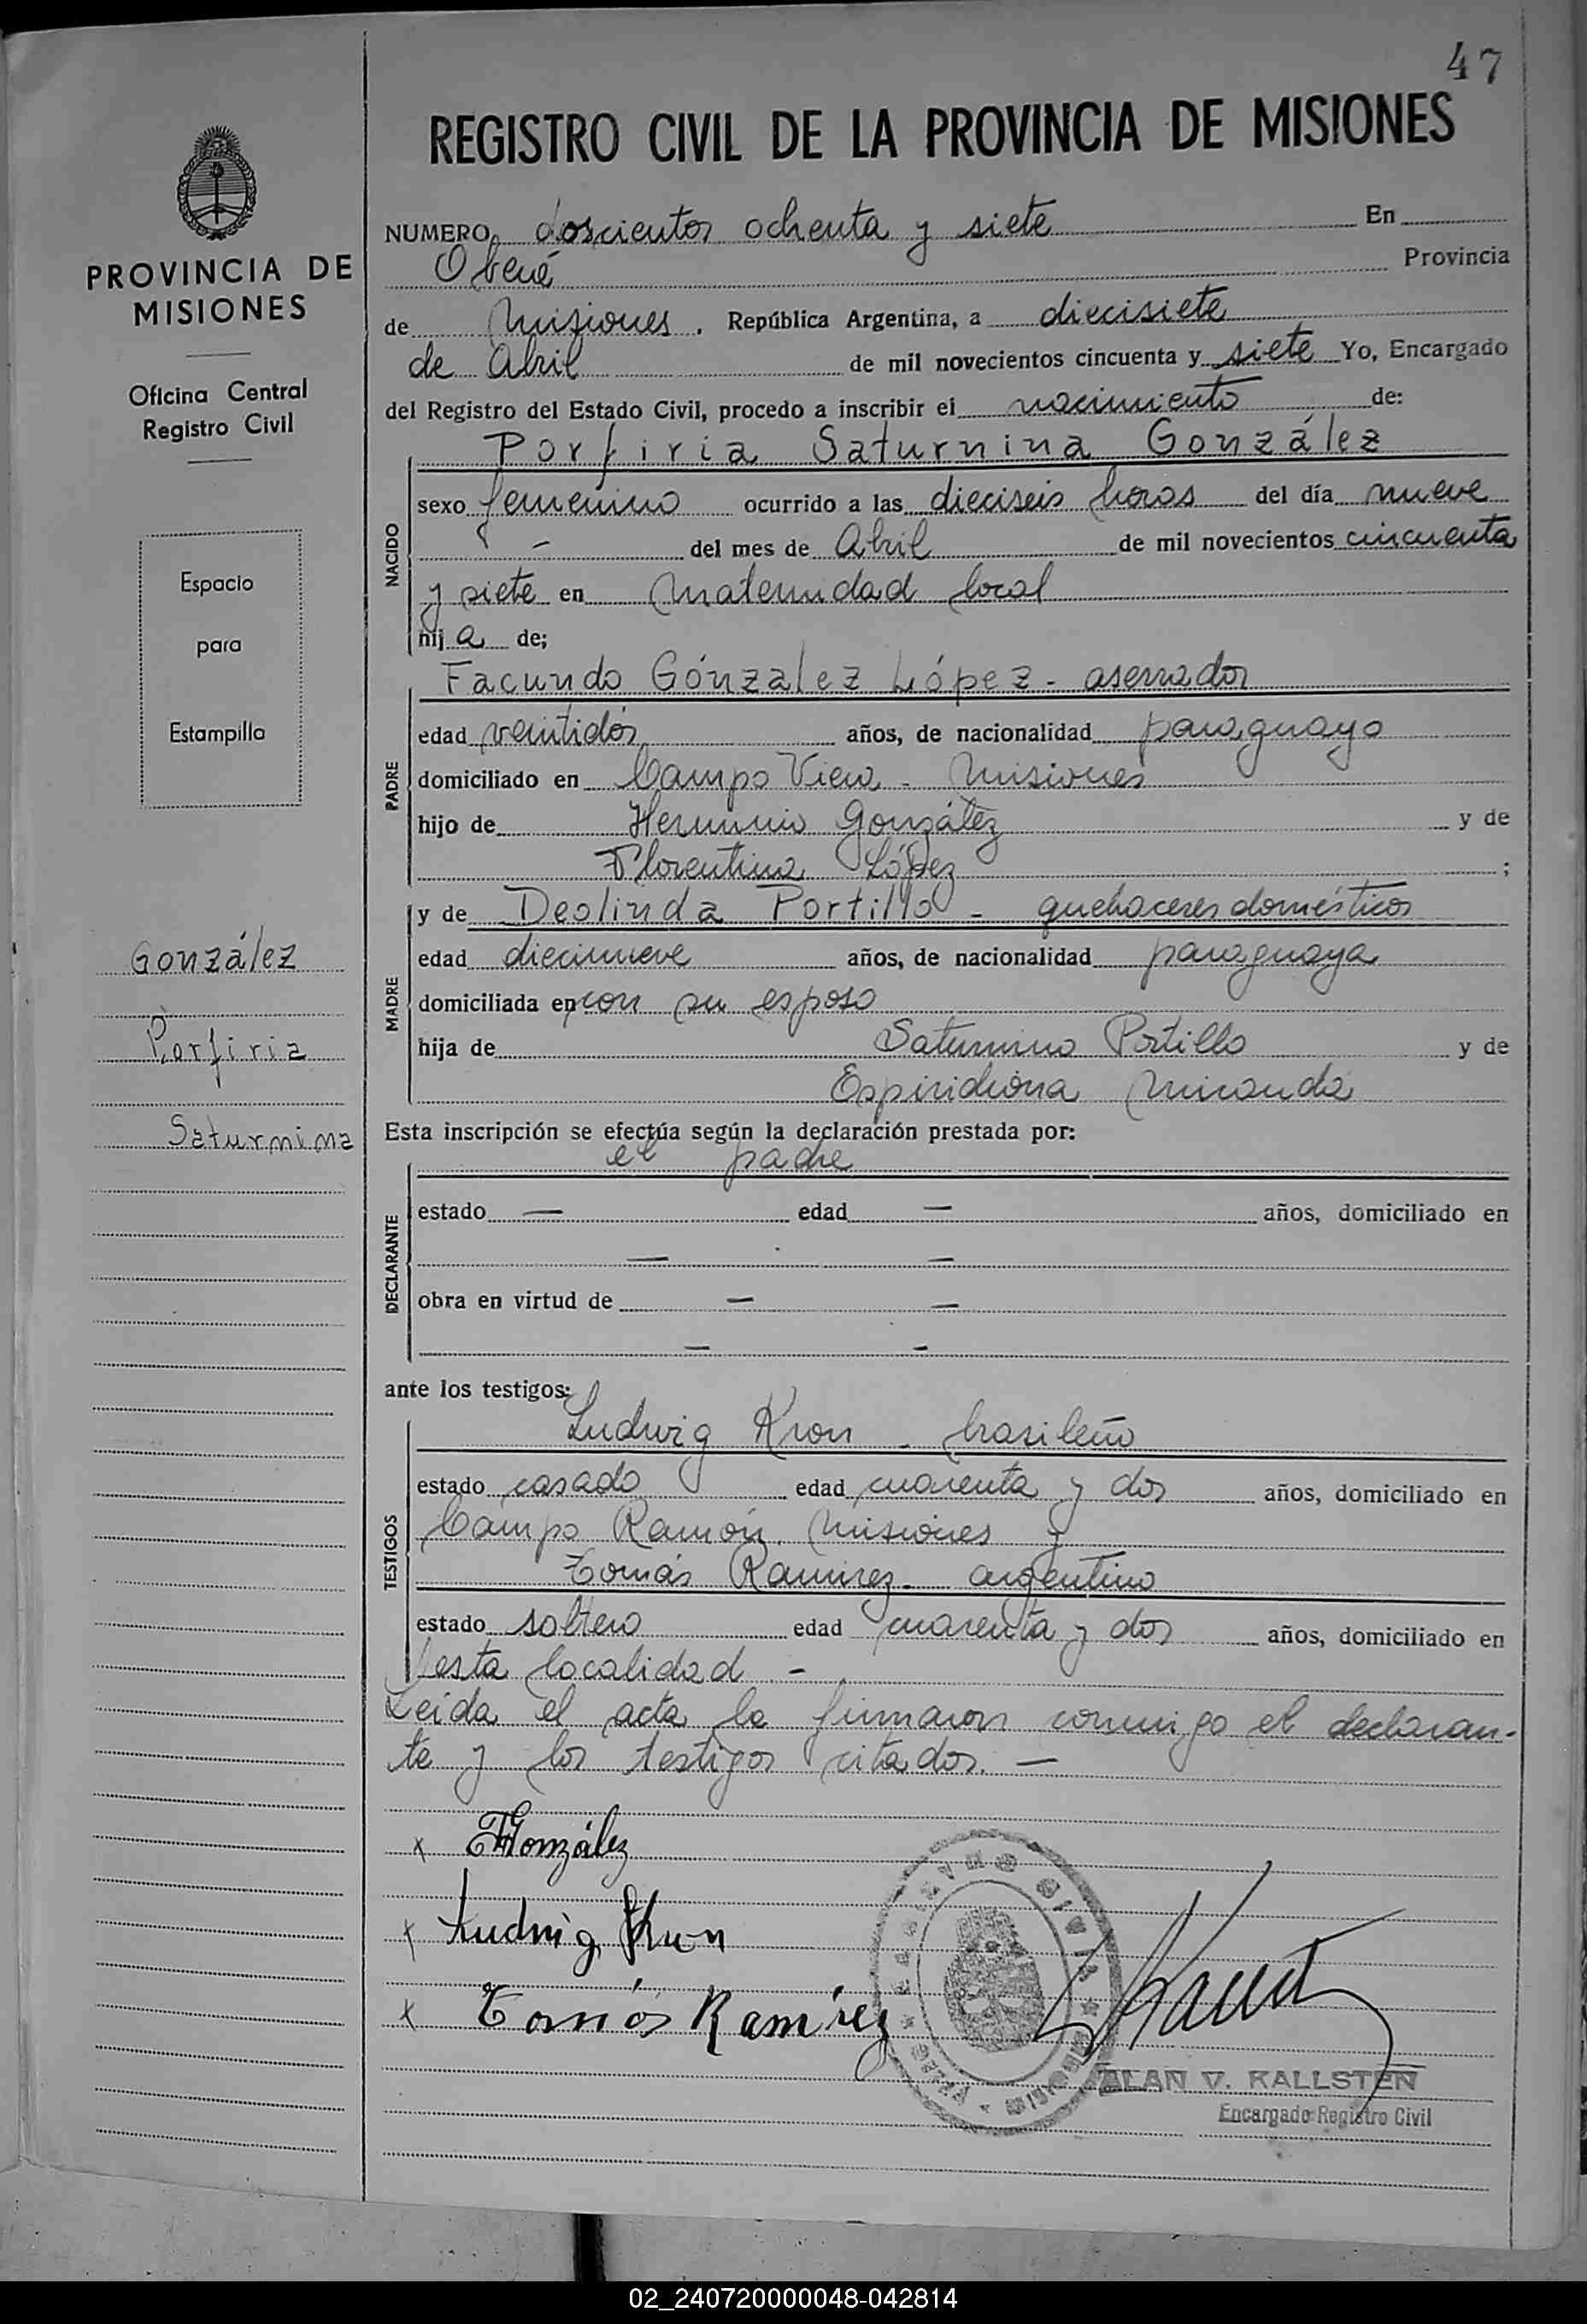 47
REGISTRO CIVIL DE LA PROVINCIA DE MISIONES
PROVINCIA DE
MISIONES
Oficina Central
Registro Civil
Espacio
para
Estampilla
González
Porfiria
Saturnina
NUMERO doscientos ochenta y siete En
Oberá Provincia
de Misiones. República Argentina, a diecisiete
de Abril de mil novecientos cincuenta y siete Yo, Encargado
del Registro del Estado Civil, procedo a inscribir el nacimiento de:
Porfiria Saturnina González
NACIDO
sexo femenino ocurrido a las dieciseis horas del día nueve
- del mes de Abril de mil novecientos cincuenta
y siete en Maternidad local
hij a de;
Facundo González López - aserrador
PADRE
edad veintidós años, de nacionalidad paraguayo
domiciliado en Campo Viera - Misiones
hijo de Herminio González y de
Florentina López ;
y de Deolinda Portillo - quehaceres domésticos
MADRE
edad diecinueve años, de nacionalidad paraguaya
domiciliada en con su esposo
hija de Saturnino Portillo y de
Espiridiona Miranda
Esta inscripción se efectúa según la declaración prestada por:
el padre
DECLARANTE
estado — edad — años, domiciliado en
— —
obra en virtud de — —
— -
ante los testigos:
Ludwig Kron - brasileño
TESTIGOS
estado casado edad cuarenta y dos años, domiciliado en
Campo Ramón, Misiones y
Tomás Ramirez - argentino
estado soltero edad cuarenta y dos años, domiciliado en
esta localidad -
Leída el acta la firmaron conmigo el declaran-
te y los testigos citados. —
x FGonzález
x Ludwig Kron
x Tomás Ramírez
ALAN V. KALLSTEN
Encargado Registro Civil
02_240720000048-042814